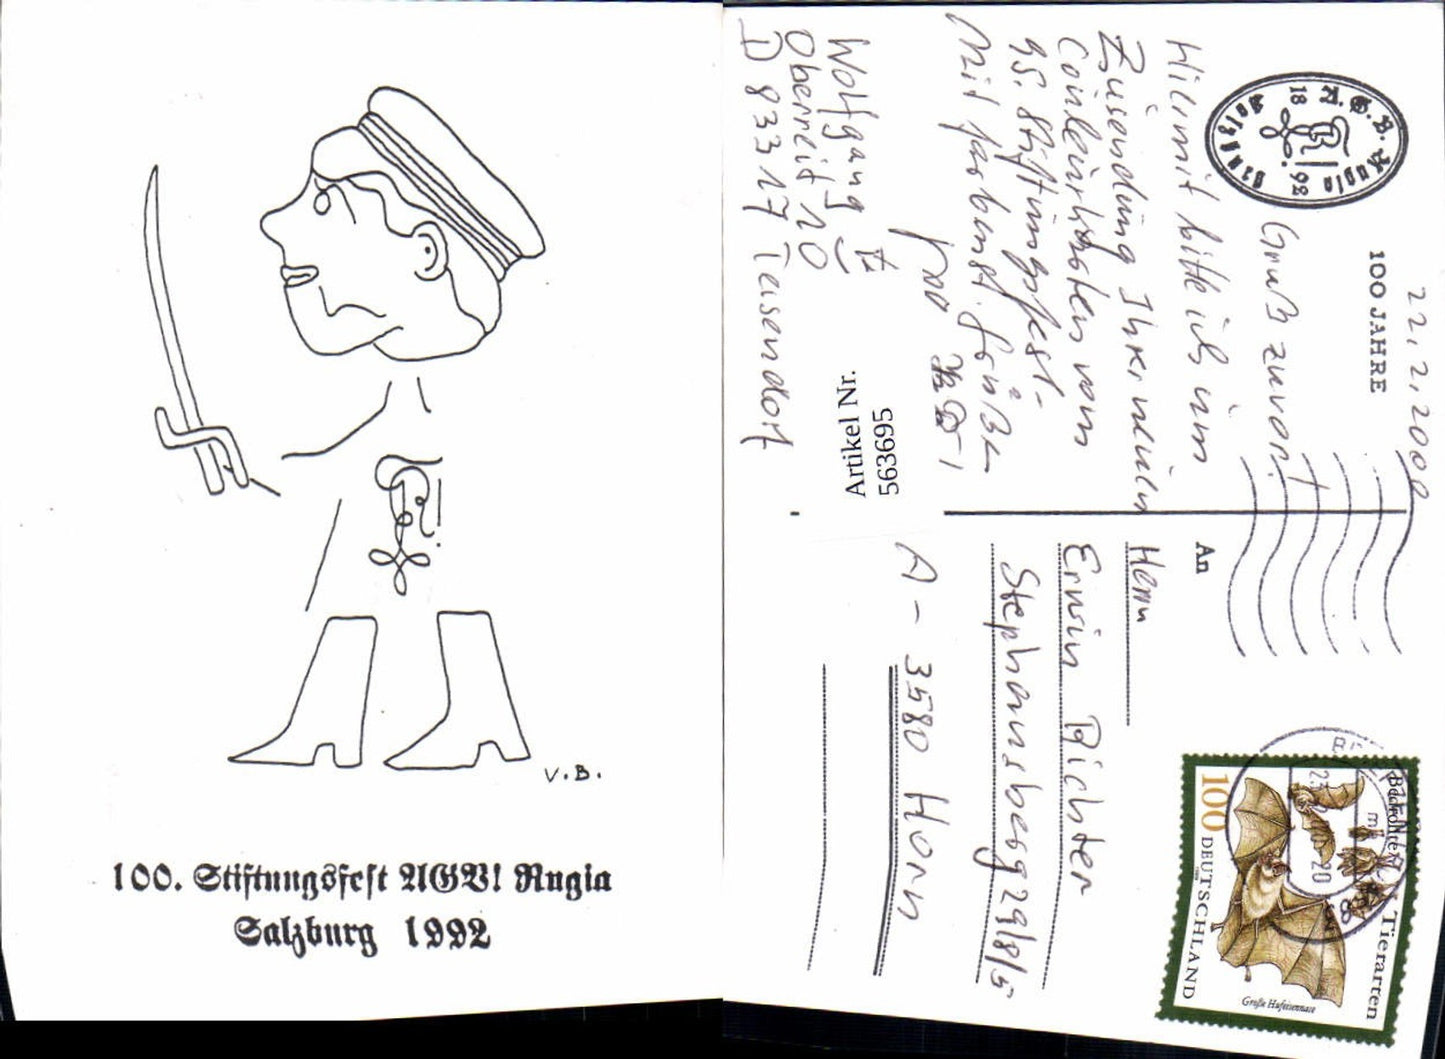 V.B.
100. Stiftungsfest AGV! Rugia
Salzburg 1992
22.2.2000
100 JAHRE
18 92
Salzburg
Gruß zuvor!
Hiermit bitte ich um
Zusendung Ihrer neuen
Couleurkarten vom
95. Stiftungsfest.
Mit farbenst. Grüßen
Wolfgang
Oberreit 10
D 83317 Teisendorf
Artikel Nr.
563695
An
Herrn
Erwin Richter
Stephansberg 29/8/5
A-3580 Horn
100
DEUTSCHLAND
Bedrohte Tierarten
Große Hufeisennase